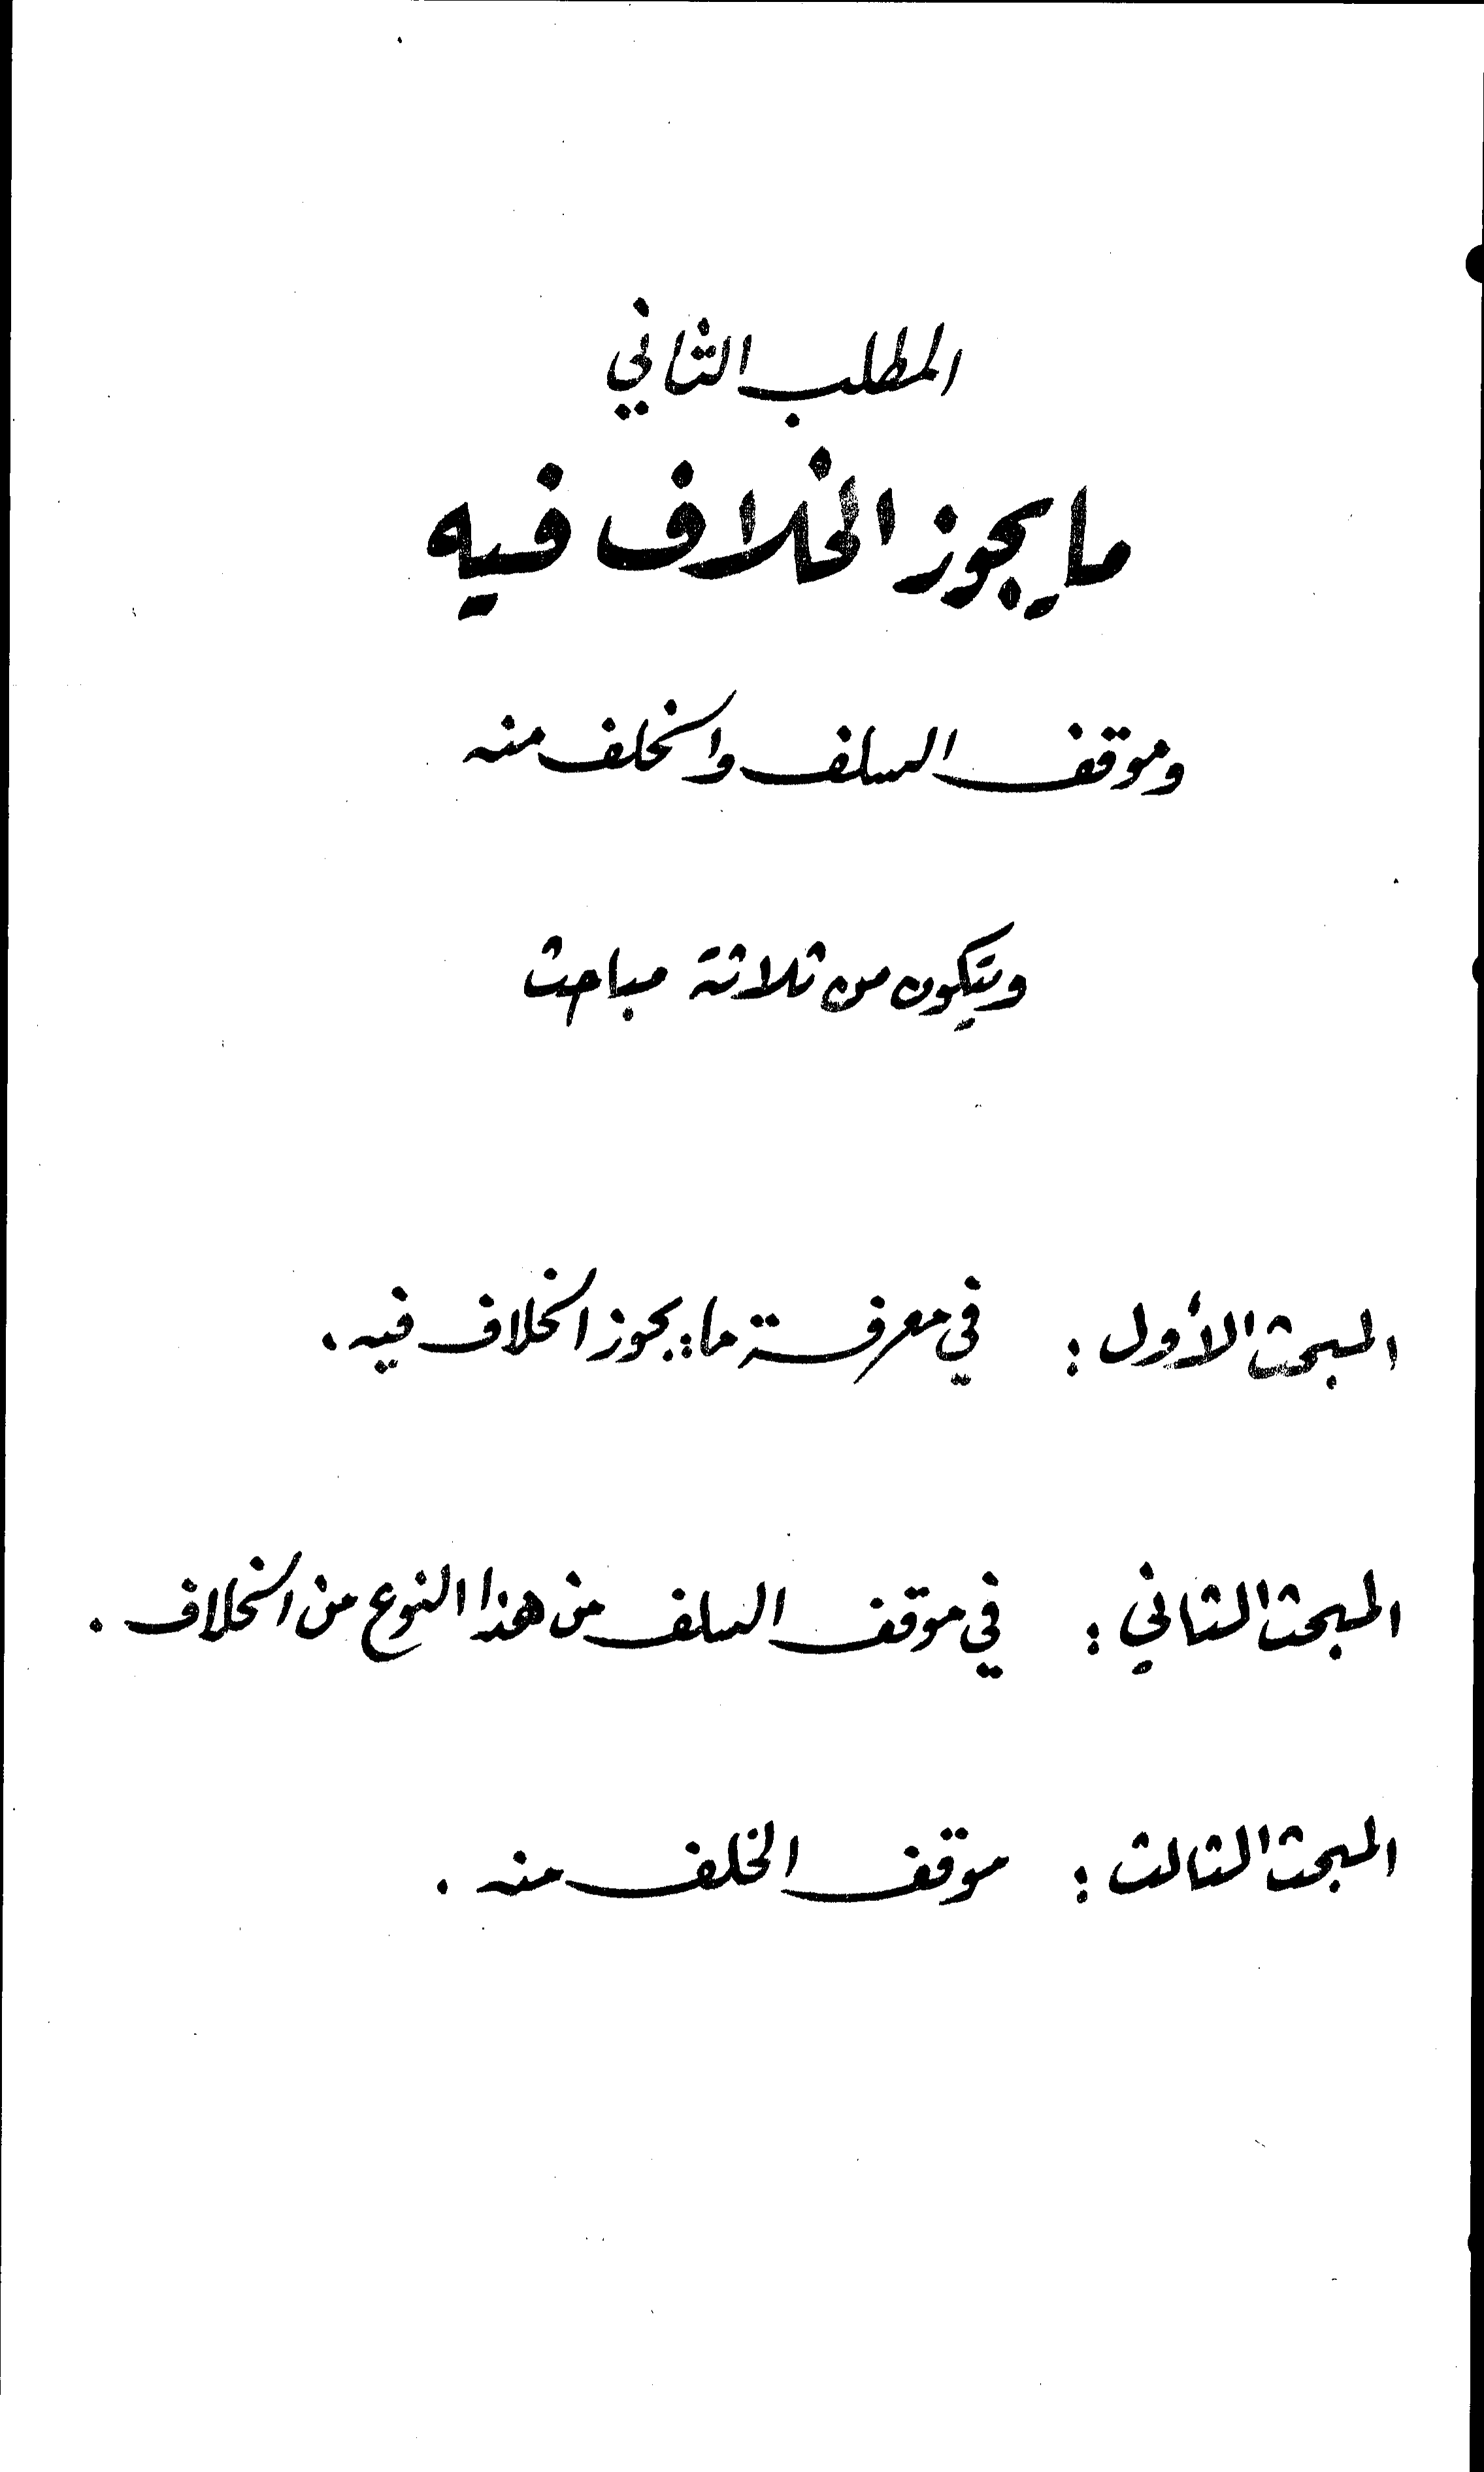 المطلب الثاني
ما يجوز الخلاف فيه
وموقف السلف والخلف منه
ويتكون من ثلاثة مباحث
المبحث الأول : في معرفة ما يجوز الخلاف فيه .
المبحث الثاني : في موقف السلف من هذا النوع من الخلاف .
المبحث الثالث : موقف الخلف منه .